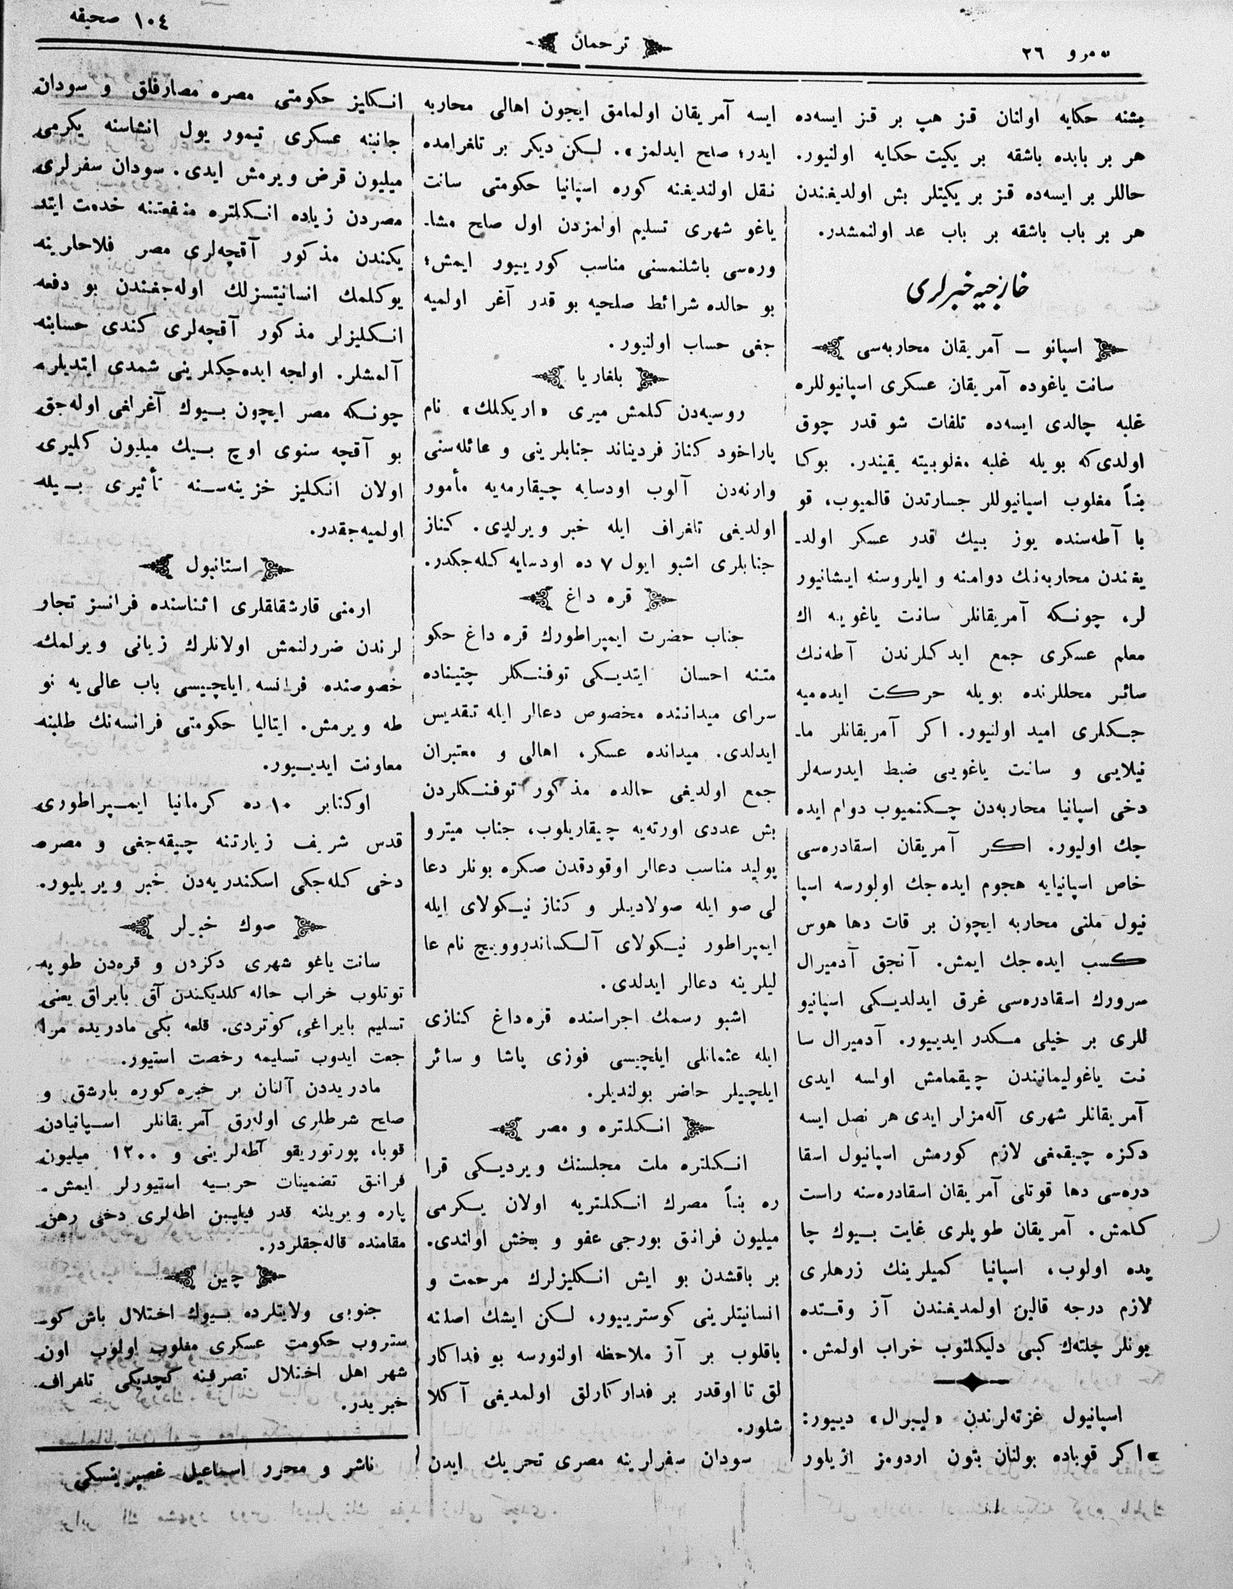 نمرو ٢٦
ترجمان
١٠٤ صحیفه
یشنه حکایه اولنان قز هپ بر قز ایسه‌ده
هر بر بابده باشقه بر یکیت حکایه اولنیور.
حاللر بر ایسه‌ده قز بر یکیتلر بش اولدیغندن
هر بر باب باشقه بر باب عد اولنمشدر.
خارجیه خبرلری
اسپانو ــ آمریقان محاربه‌سی
سانت یاغوده آمریقان عسکری اسپانیوللره
غلبه چالدی ایسه‌ده تلفات شو قدر چوق
اولدی‌که بویله غلبه مغلوبیته یقیندر. بوکا
بنـاً مغلوب اسپانیوللر جسارتدن قالمیوب، قو
با آطه‌سنده یوز بیك قدر عسکر اولد۔
یغندن محاربه‌نك دوامنه و ایلروسنه ایشانیور
لر، چونـکه آمریقانلر سانت یاغویه اك
معلم عسکری جمع ایدکلرندن آطه‌نك
سائر محللرنده بویله حرکت ایده‌میه
جـکلری امید اولنیور. اکر آمریقانلر ما۔
نیلایی و سانت یاغویی ضبط ایدرسه‌لر
دخی اسپانیا محاربه‌دن چـکنمیوب دوام ایده
جك اولیور. اکر آمریقان اسقادره‌سی
خاص اسپانیایه هجوم ایده‌جك اولورسه اسپا
نیول ملتی محاربه ایچون بر قات دها هوس
کسب ایده‌جك ایمش. آنجق آدمیرال
سرورك اسقادره‌سی غرق ایدلدیـکی اسپانیو
للری بر خیلی مـکدر ایدییور. آدمیرال سا
نت یاغولیمانیندن چیقمامش اولسه ایدی
آمریقانلر شهری آله‌مزلر ایدی هر نصل ایسه
دکزه چیقمغی لازم کورمش اسپانیول اسقا
دره‌سی دها قوتلی آمریقان اسقادره‌سنه راست
کلمش. آمریقان طوپلری غایت بـیوك چا
پده اولوب، اسپانیا کمیلرینك زرهلری
لازم درجه قالین اولمدیغندن آز وقـتده
بونلر چلته‌ك کبی دلیکلنوب خراب اولمش.
اسپانیول غزته‌لرندن «لیبرال» دییور:
«اکر قوباده بولنان بتون اردومز ازیلور
ایسه آمریقان اولمامق ایچون اهالی محاربه
ایدر؛ صلح ایدلمز». لـکن دیکر بر تلغرامده
نـقل اولندیغنه کوره اسپانیا حکومتی سانت
یاغو شهری تسلیم اولمزدن اول صلح مشا۔
وره‌سی باشلنمسنی مناسب کورییور ایمش؛
بو حالده شرائط صلحیه بو قدر آغر اولمیه
جغی حساب اولنیور.
بلغاریا
روسیه‌دن کلمش میری «اریکلك» نام
پاراخود کناز فردیناند جنابلرینی و عائله‌سنی
وارنه‌دن آلوب اودسایه چیقارمه‌یه مأمور
اولدیغی تلغراف ایله خبر ویرلدی. کناز
جنابلری اشبو ایول ٧ ده اودسایه کله‌جکدر.
قره داغ
جناب حضرت ایمپراطورك قره داغ حکو
متنه احسان ایتدیـکی توفنـکلر چتینه‌ده
سرای میداننده مخصوص دعالر ایله تقدیس
ایدلدی. میدانده عسکر، اهالی و معتبران
جمع اولدیغی حالده مذکور توفنـکلردن
بش عددی اورته‌یه چیقاریلوب، جناب میترو
پولید مناسب دعالر اوقودقدن صکره بونلر دعا
لی صو ایله صولادیلر و کناز نیـکولای ایله
ایمپراطور نیـکولای آلـکساندروویچ نام عا
لیلرینه دعالر ایدلدی.
اشبو رسمك اجراسنده قره‌داغ کنازی
ایله عثمانلی ایلچیسی فوزی پاشا و سائر
ایلچیلر حاضر بولندیلر.
انـکلتره و مصر
انـکلتره ملت مجلسنك ویردیـکی قرا
ره بنـاً مصرك انـکلتریه اولان یـکرمی
میلیون فرانق بورجی عفو و بخش اولندی.
بر باقشدن بو ایش انـکلیزلرك مرحمت و
انسانیتلرینی کوسترییور، لـکن ایشك اصلنه
باقلوب بر آز ملاحظه اولنورسه بو فداکار
لق تا اوقدر بر فدارکارلق اولمدیغی آکلا
شلور.
سودان سفرلرینه مصری تحریك ایدن
انـکلیز حکومتی مصره مصارفلق و سودان
جانبنه عسکری تیمور یول انشاسنه یکرمی
میلیون قرض ویرمش ایدی. سودان سفرلری
مصردن زیاده انـکلتره منفعتنه خدمت ایتد
یکندن مذکور آقچه‌لری مصر فلاحلرینه
یوکلمك انسانیتسزلك اوله‌جغندن بو دفعه
انـکلیزلر مذکور آقچه‌لری کندی حسابنه
آلمشلر. اولجه ایده‌جکلرینی شمدی ایتدیلر،
چونـکه مصر ایچون بـیوك آغرلغی اوله‌جق
بو آقچه سنوی اوچ بـیك میلیون کلیری
اولان انکلیز خزینه‌سـنه تأثیری بـیله
اولمیه‌جقدر.
استانبول
ارمنی قارشقلقلری اثناسنده فرانسز تجار
لرندن ضررلنمش اولانلرك زیانی ویرلمك
خصوصنده فرانسه ایلچیسی باب عالی‌یه نو
طه ویرمش. ایتالیا حکومتی فرانسه‌نك طلبنه
معاونت ایدیـیور.
اوکتابر ١٠ ده کرمانیا ایمـپراطوری
قدس شریف زیارتنه چیقه‌جغی و مصره
دخی کله‌جکی اسکندریه‌دن خبر ویریلیور.
صوك خبرلر
سانت یاغو شهری دکزدن و قره‌دن طوپه
توتلوب خراب حاله کلدیکندن آق بایراق یعنی
تسلیم بایراغی کوتردی. قلعه بکی مادریده مرا
جعت ایدوب تسلیمه رخصت استیور.
مادریددن آلنان بر خبره کوره بارشق و
صلح شرطلری اوله‌رق آمریقانلر اسـپانیادن
قوبا، پورتوریقو آطه‌لرینی و ١٢٠٠ میلیون
فرانق تضمینات حربـیه استیورلر ایمش.
پاره ویریلنه قدر فیلیپین اطه‌لری دخی رهن
مقامنده قاله‌جقلردر.
چین
جنوبی ولایتلرده بـیوك اختلال باش کو۔
ستروب حکومت عسکری مغلوب اولوب اون
شهر اهل اختلال تصرفنه کچدیکی تلغراف
خبریدر.
ناشر و محرر اسماعیل غصپرینسکی